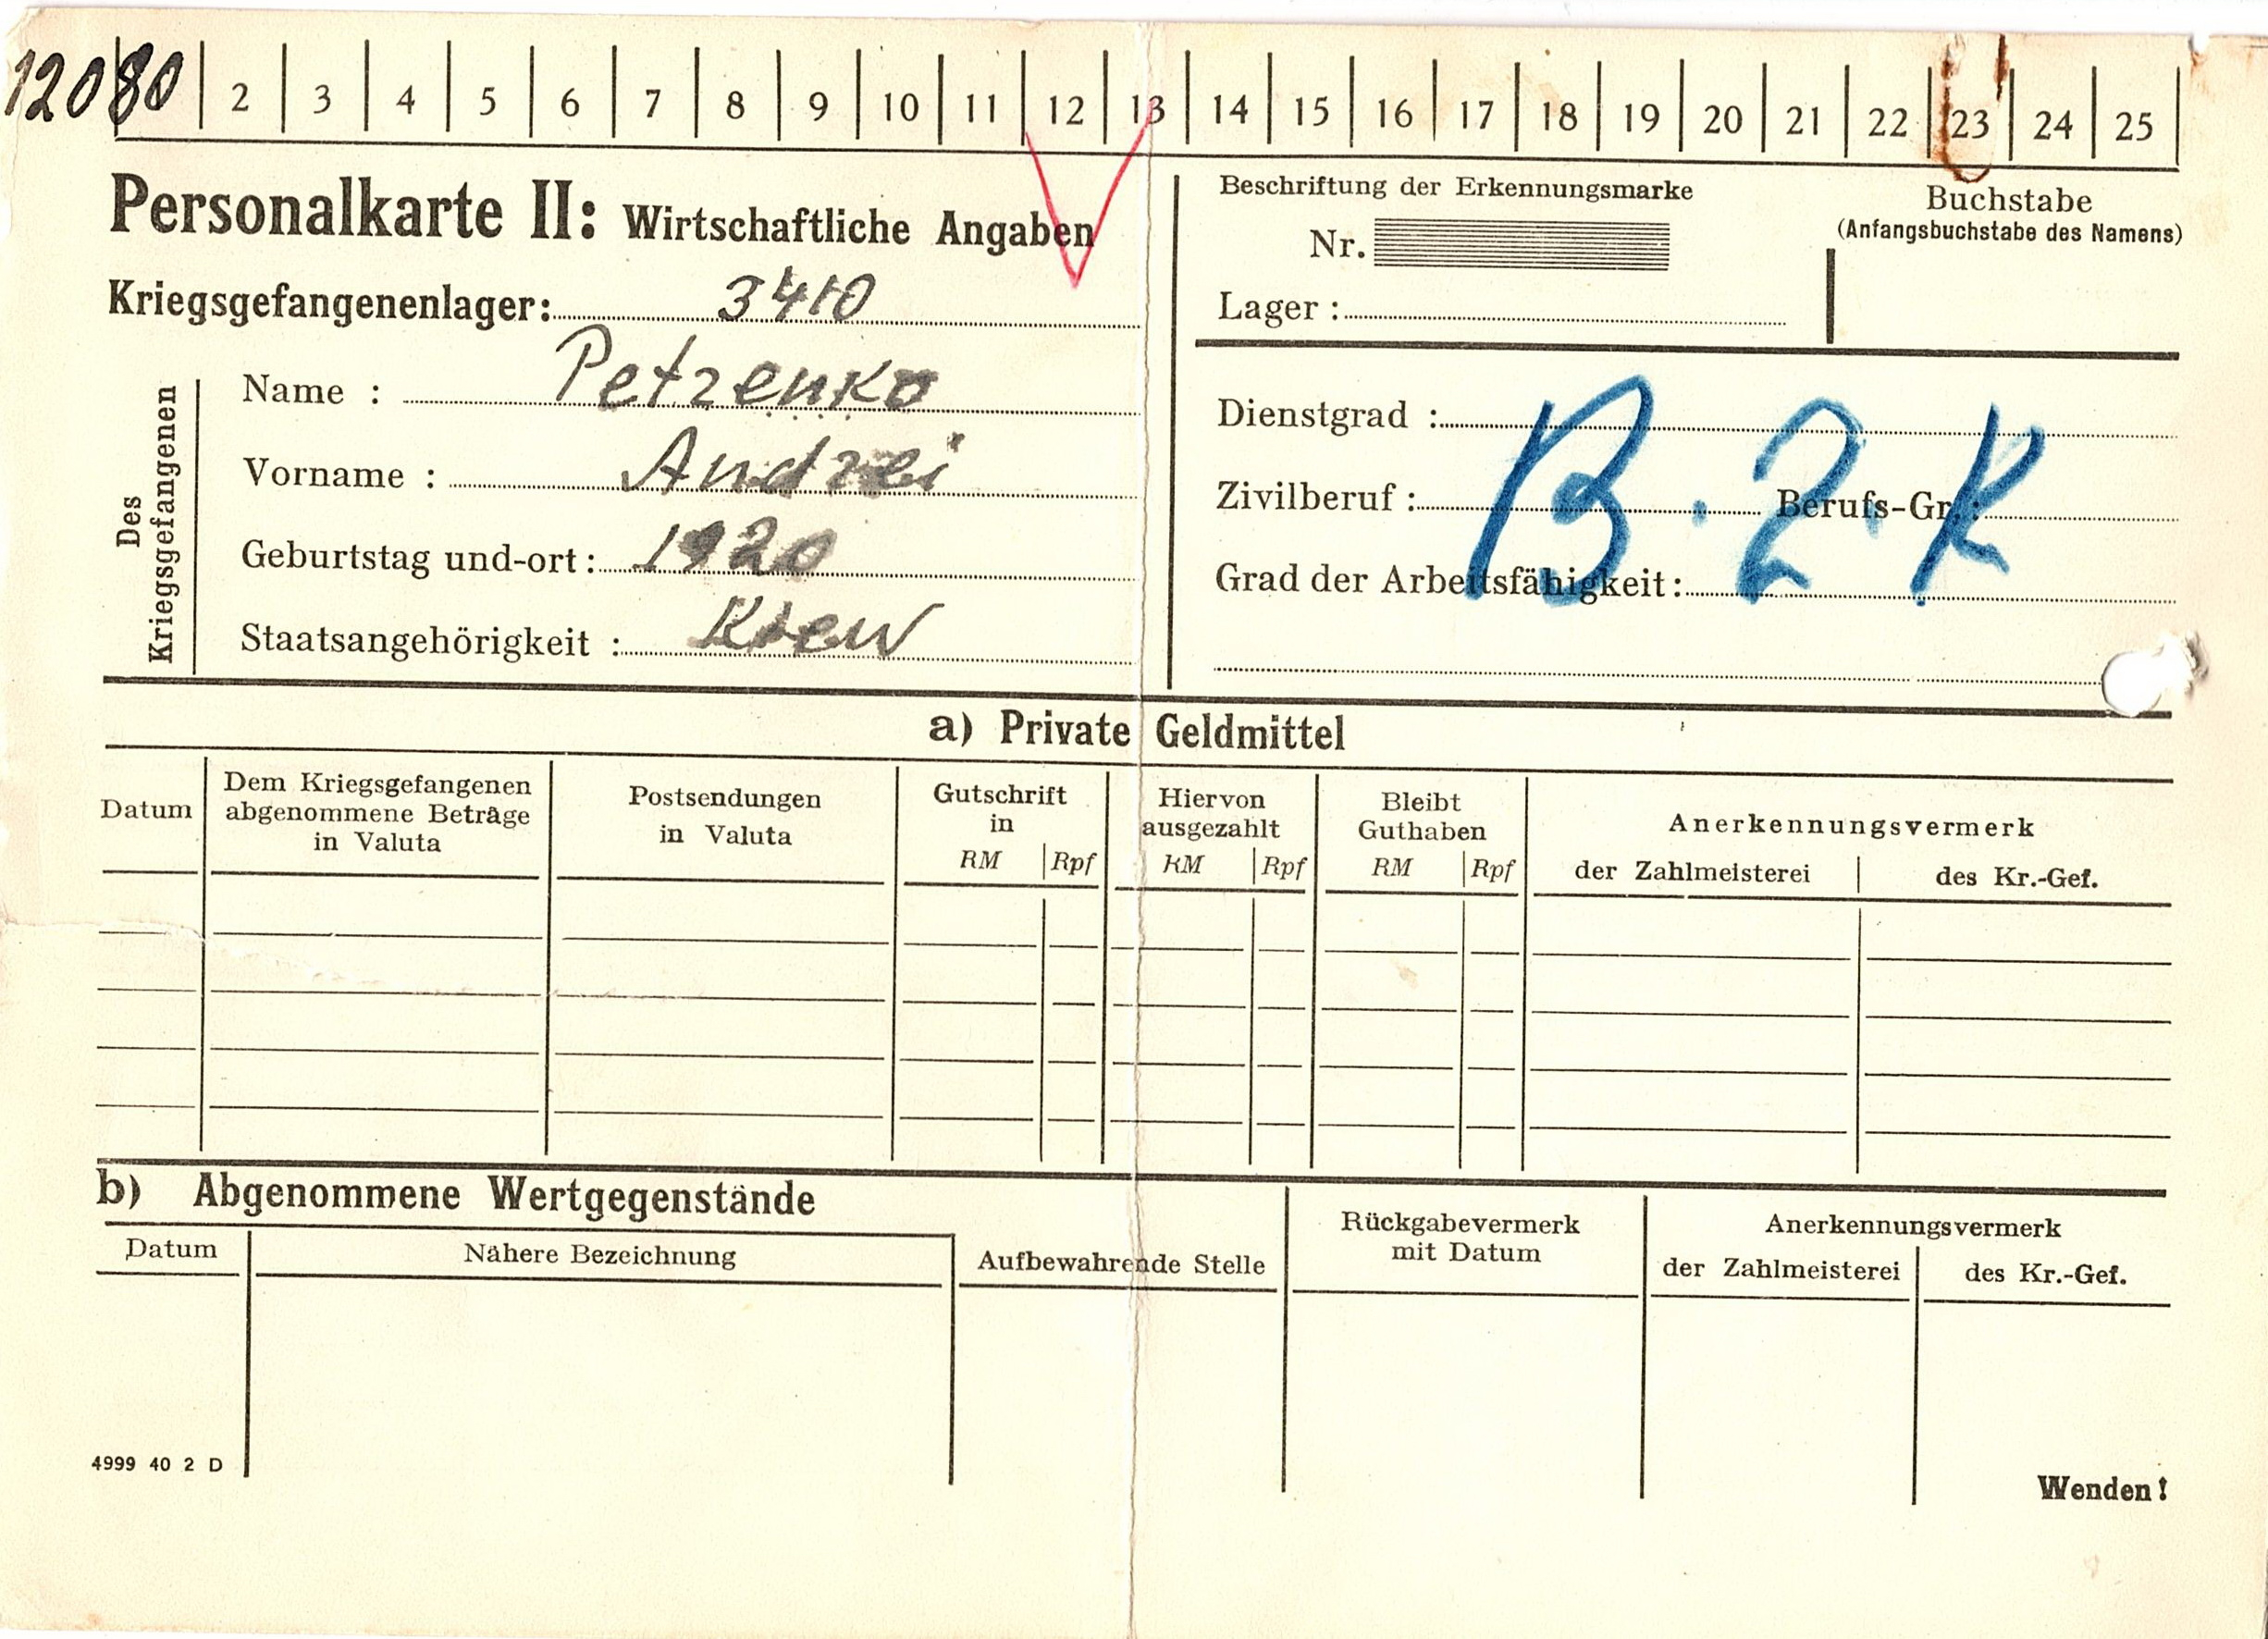 12080 2 3 4 5 6 7 8 9 10 11 12 13 14 15 16 17 18 19 20 21 22 23 24 25
Personalkarte II: Wirtschaftliche Angaben
Kriegsgefangenenlager: 3410
Des
Kriegsgefangenen
Name : Petrenko
Vorname : Andrei
Geburtstag und-ort : 1920
Staatsangehörigkeit : Kiew
Beschriftung der Erkennungsmarke
Nr.
Lager :
Buchstabe
(Anfangsbuchstabe des Namens)
Dienstgrad :
B. 2. K
Zivilberuf : Berufs-Gr. :
Grad der Arbeitsfähigkeit :
a) Private Geldmittel
Datum
Dem Kriegsgefangenen
abgenommene Beträge
in Valuta
Postsendungen
in Valuta
Gutschrift
in
RM Rpf
Hiervon
ausgezahlt
RM Rpf
Bleibt
Guthaben
RM Rpf
Anerkennungsvermerk
der Zahlmeisterei des Kr.-Gef.
b) Abgenommene Wertgegenstände
Datum
Nähere Bezeichnung
Aufbewahrende Stelle
Rückgabevermerk
mit Datum
Anerkennungsvermerk
der Zahlmeisterei des Kr.-Gef.
4999 40 2 D
Wenden!